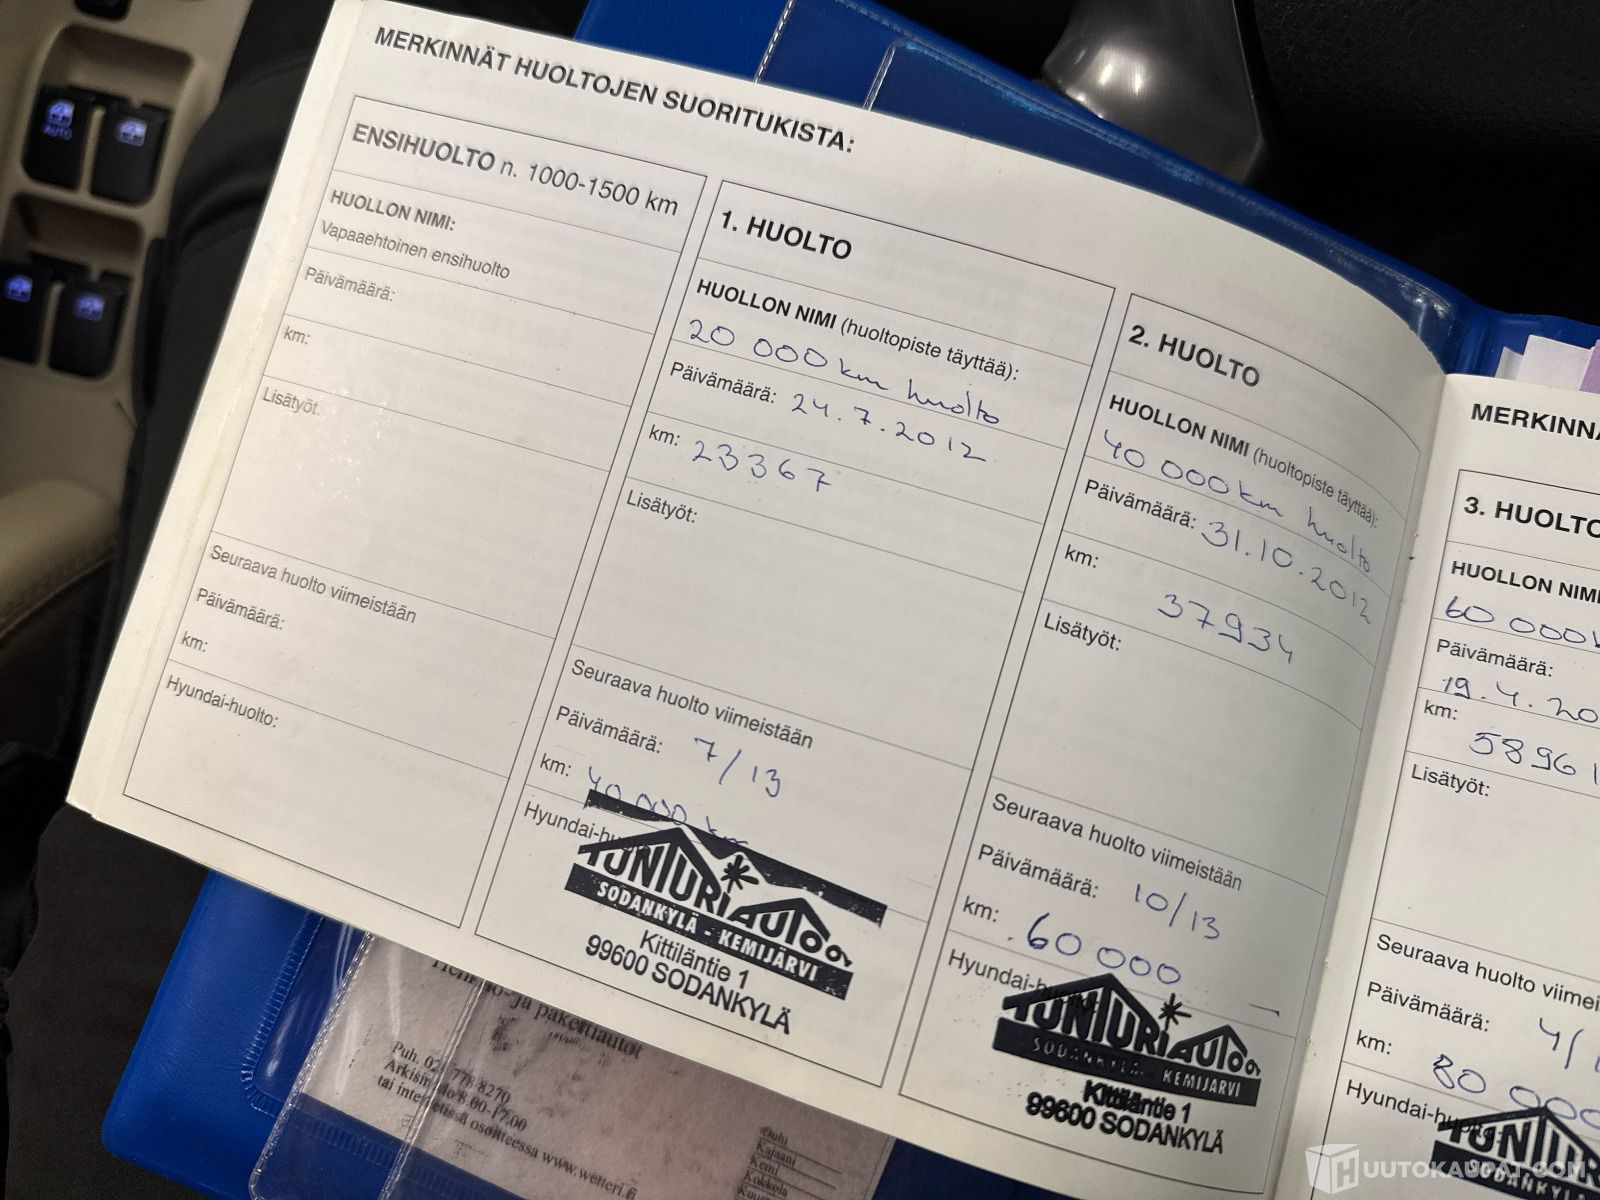 MERKINNÄT HUOLTOJEN SUORITUKISTA:
ENSIHUOLTO n. 1000-1500 km
HUOLLON NIMI:
Vapaaehtoinen ensihuolto
Päivämäärä:
km:
Lisätyöt.
Seuraava huolto viimeistään
Päivämäärä:
km:
Hyundai-huolto:
1. HUOLTO
HUOLLON NIMI (huoltopiste täyttää):
20 000 km huolto
Päivämäärä: 24.7.2012
km: 23367
Lisätyöt:
Seuraava huolto viimeistään
Päivämäärä: 7/13
km: 40 000 km
Hyundai-hu
TUNTURIAUTO
SODANKYLÄ - KEMIJÄRVI
Kittiläntie 1
99600 SODANKYLÄ
2. HUOLTO
HUOLLON NIMI (huoltopiste täyttää):
40 000 km huolto
Päivämäärä: 31.10.2012
km:
37934
Lisätyöt:
Seuraava huolto viimeistään
Päivämäärä: 10/13
km: 60 000
Hyundai-hu
TUNTURIAUTO
SODANKYLÄ - KEMIJÄRVI
Kittiläntie 1
99600 SODANKYLÄ
MERKINN
3. HUOLTO
HUOLLON NIM
60 000
Päivämäärä:
19.4.20
km:
5896
Lisätyöt:
Seuraava huolto viimei
Päivämäärä: 4/
km:
80 000
Hyundai-huolto:
TUNTURI
SODANKYLÄ
ja pakettiautot
Puh. 02 778 8270
Arkisin klo 8.00-17.00
tai internetissä osoitteessa www.wetteri.fi
Oulu
Kajaani
Kemi
Kokkola
AUTO
HUUTOKAUPAT.COM